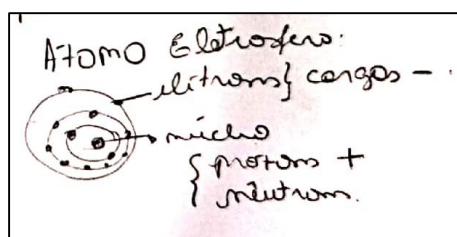 Atomo Eletrosfera:
elétrons} cargas -
núcleo
{ protons +
nêutrons.